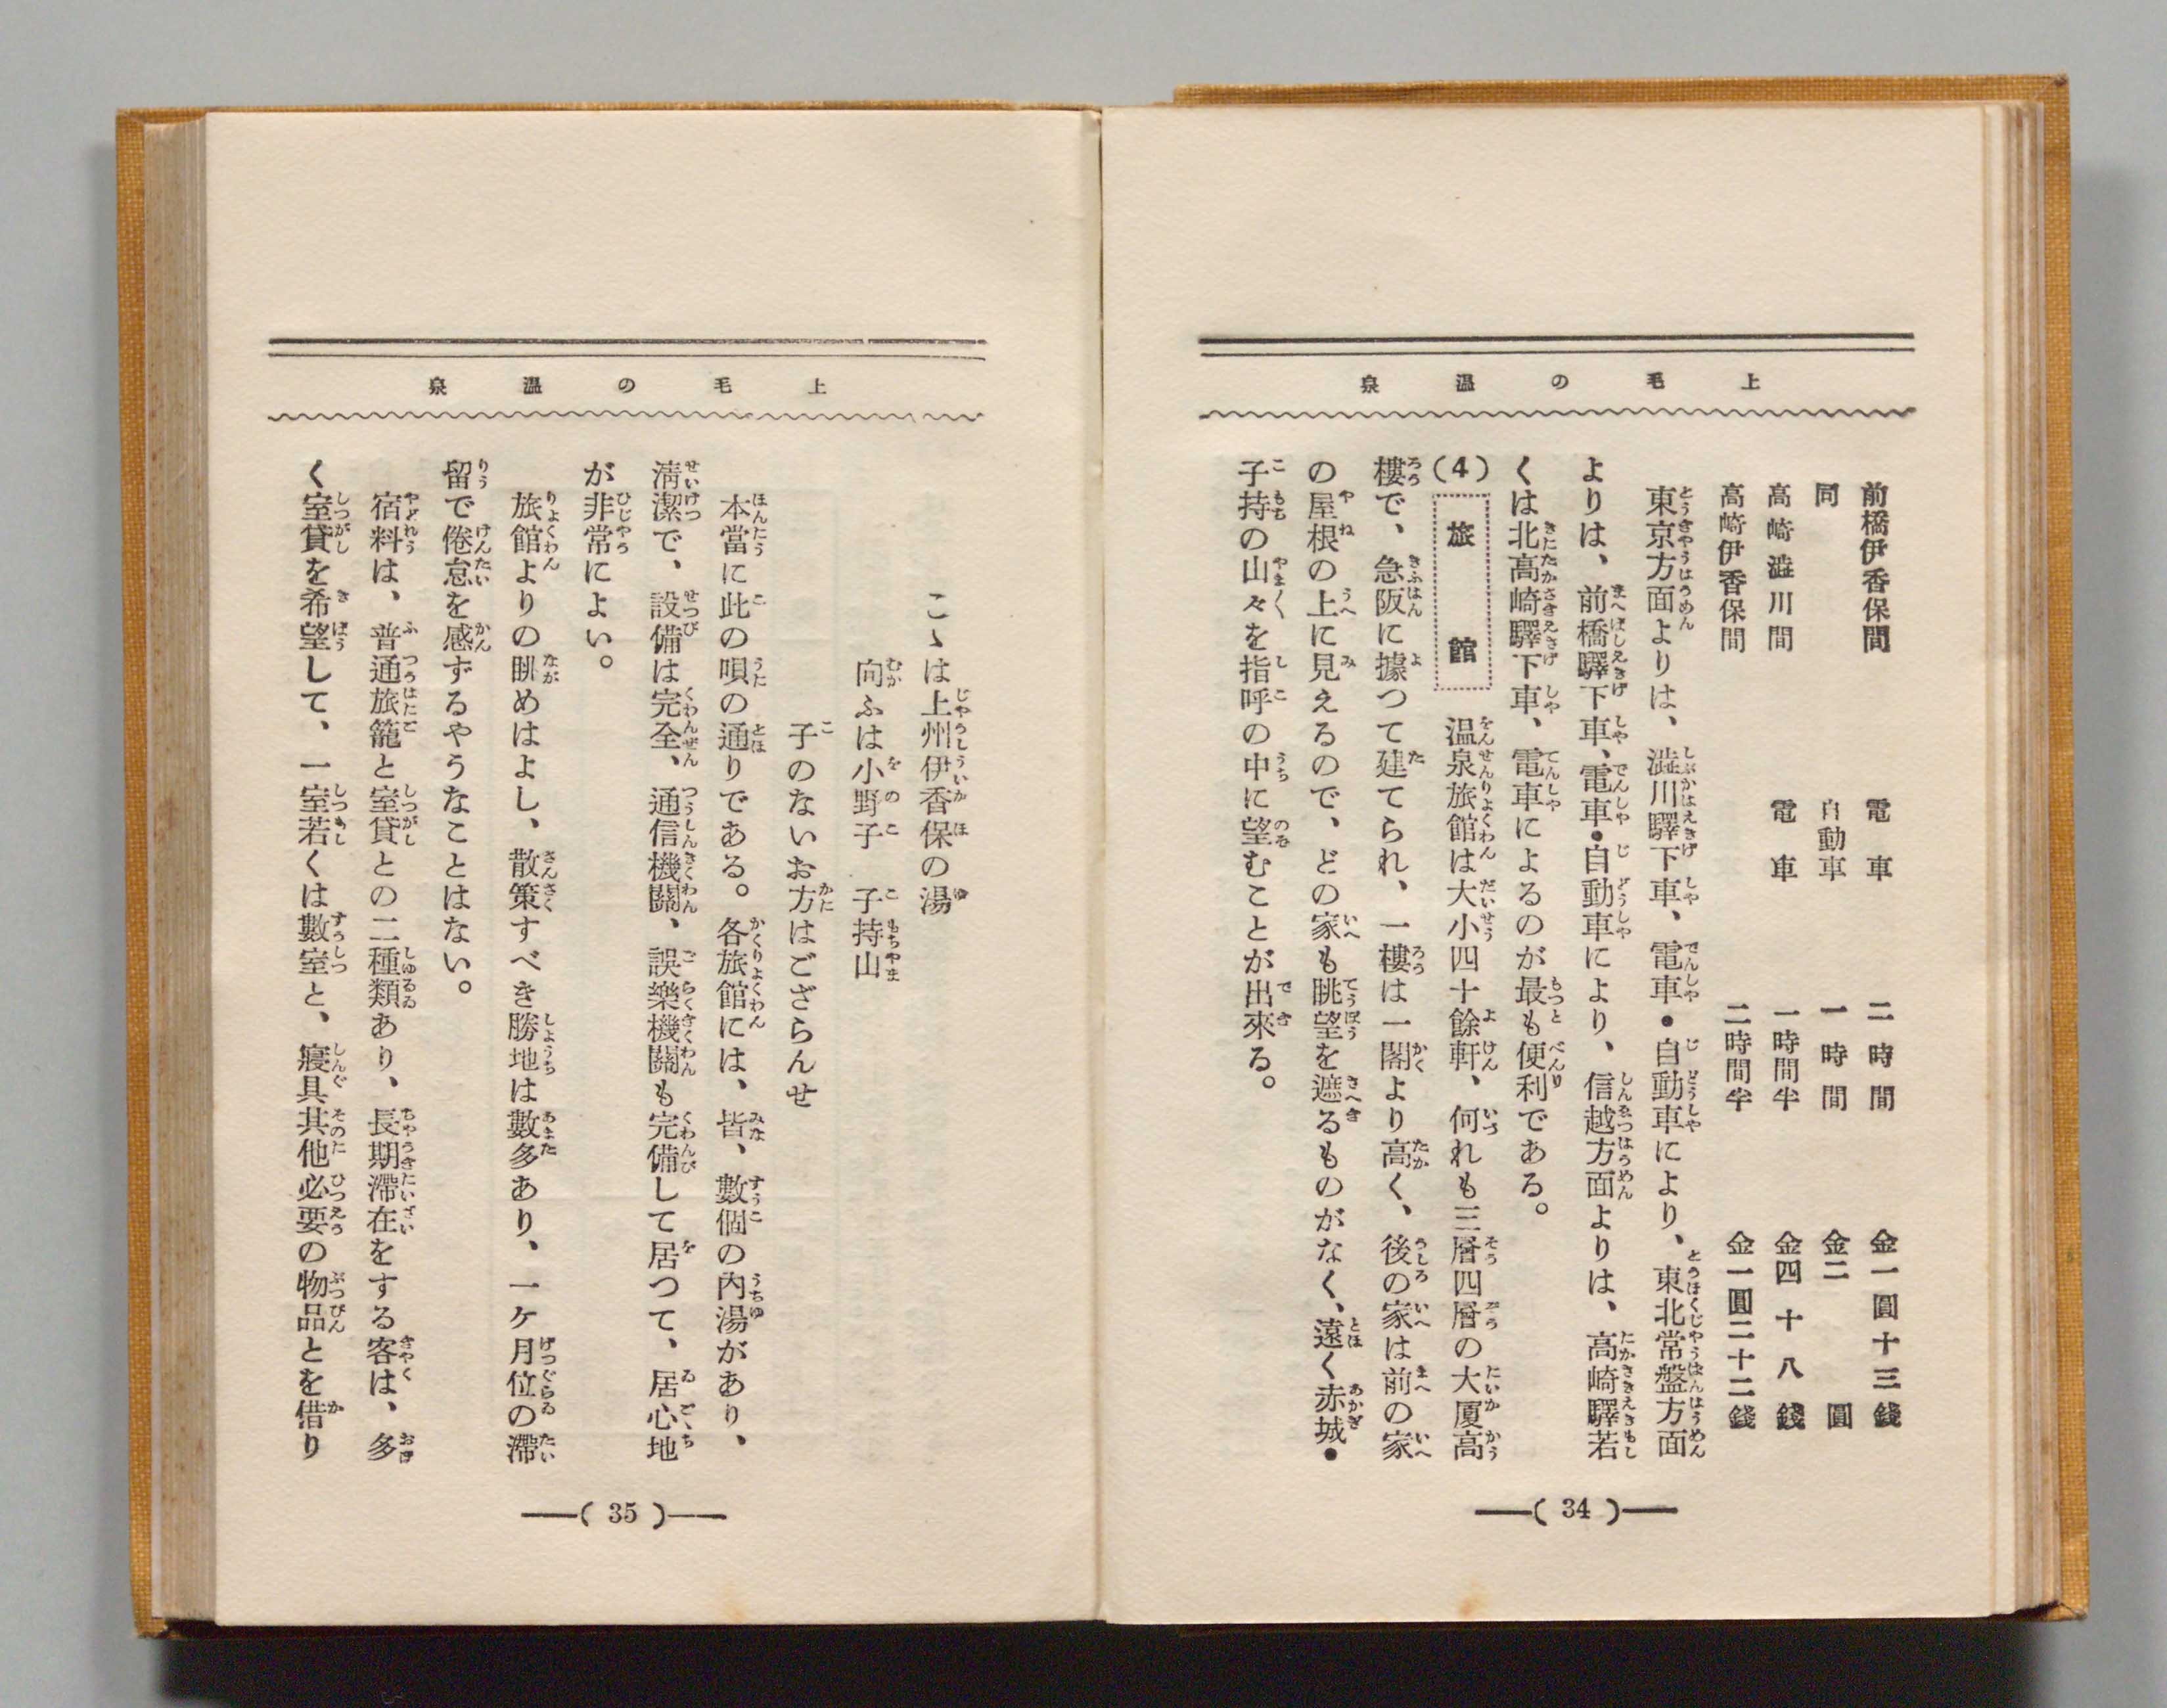 上毛の温泉
前橋伊香保間　電車　二時間　金一圓十三錢
同　自動車　一時間　金二圓
高崎澁川間　電車　一時間半　金四十八錢
高崎伊香保間　二時間半　金一圓二十二錢
東京方面よりは、澁川驛下車、電車・自動車により、東北常盤方面
よりは、前橋驛下車、電車・自動車により、信越方面よりは、高崎驛若
くは北高崎驛下車、電車によるのが最も便利である。
(4) 旅館　温泉旅館は大小四十餘軒、何れも三層四層の大厦高
樓で、急阪に據つて建てられ、一樓は一閣より高く、後の家は前の家
の屋根の上に見えるので、どの家も眺望を遮るものがなく、遠く赤城・
子持の山々を指呼の中に望むことが出來る。
(34)
上毛の温泉
こゝは上州伊香保の湯
向ふは小野子　子持山
子のないお方はござらんせ
本當に此の唄の通りである。各旅館には、皆、數個の內湯があり、
淸潔で、設備は完全、通信機關、誤樂機關も完備して居つて、居心地
が非常によい。
旅館よりの眺めはよし、散策すべき勝地は數多あり、一ケ月位の滯
留で倦怠を感ずるやうなことはない。
宿料は、普通旅籠と室貸との二種類あり、長期滯在をする客は、多
く室貸を希望して、一室若くは數室と、寢具其他必要の物品とを借り
(35)